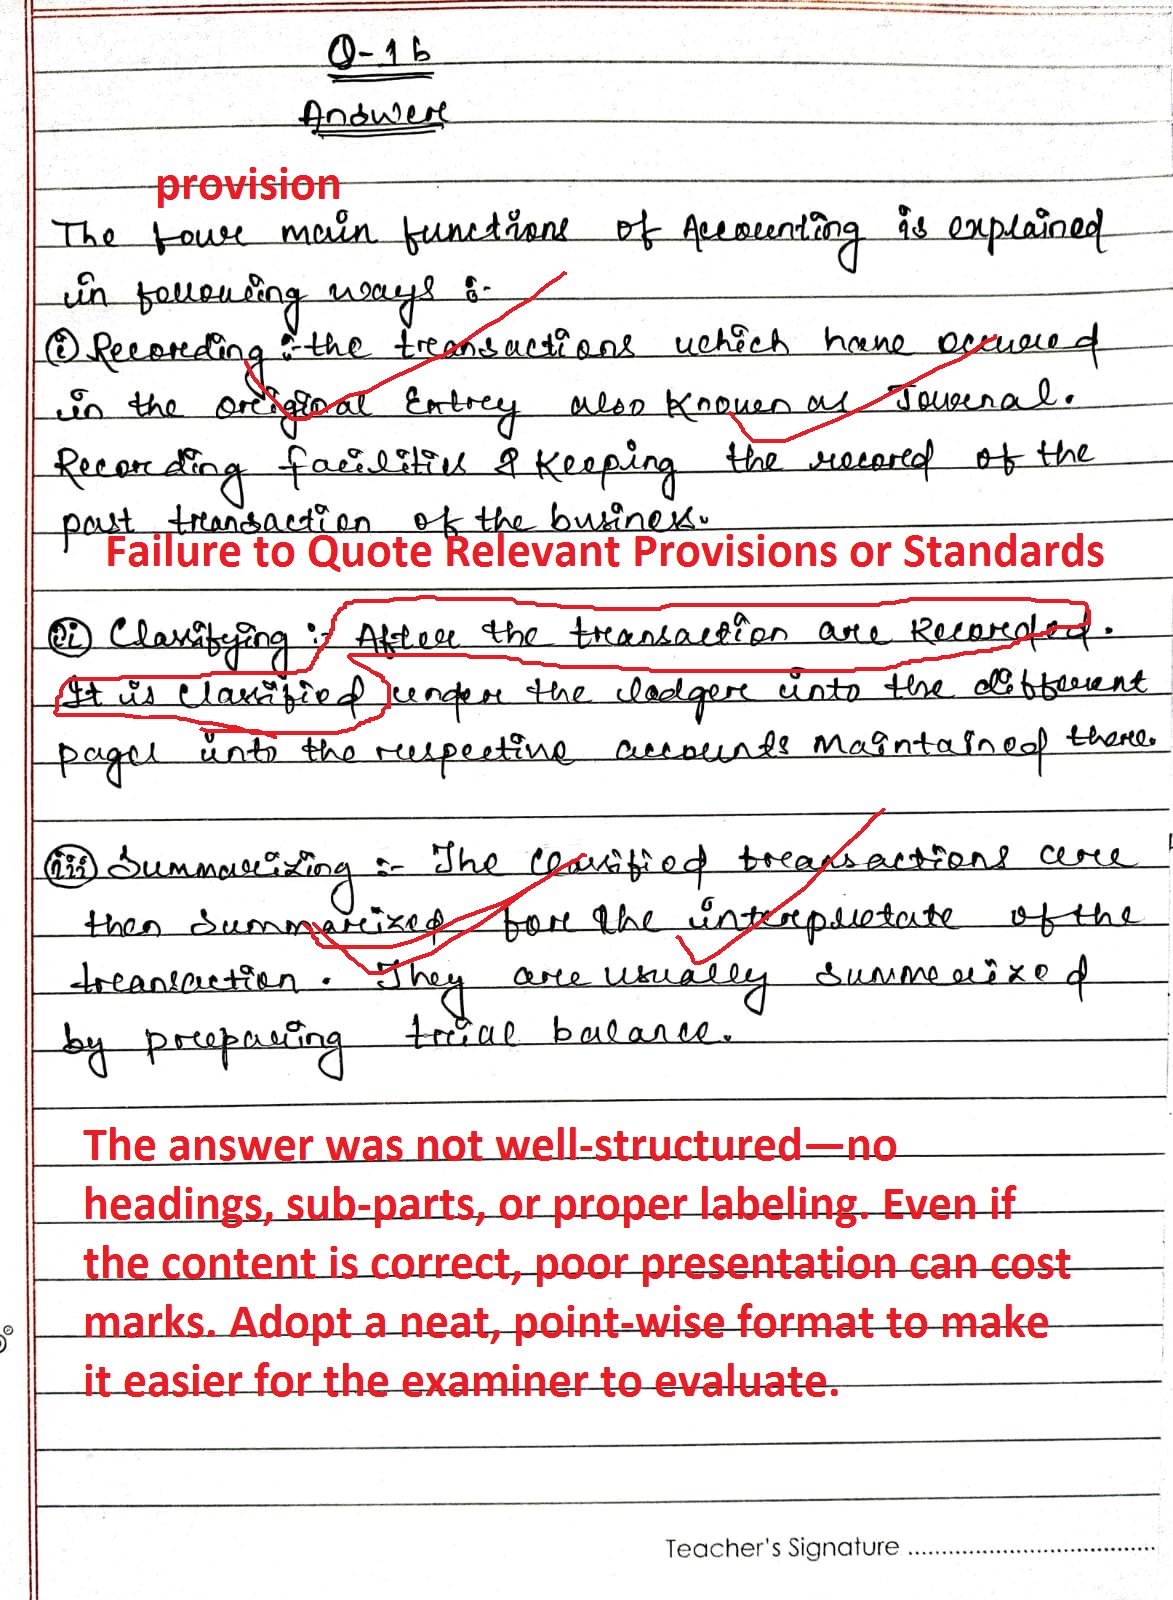 Q-1b
Answere
provision
The four main functions of Accounting is explained
in following ways :-
(i) Recording :- the transactions which have occured
in the original Entrey also Known as Journal.
Recording facilities & Keeping the record of the
past transaction of the business.
Failure to Quote Relevant Provisions or Standards
(ii) Classifying :- After the transaction are Recorded.
It is classified under the ledger into the different
pages into the respective accounts maintained there.
(iii) Summarizing :- The classified transactions are
then summarized for the interpretate of the
transaction. They are usually summerized
by preparing trial balance.
The answer was not well-structured—no
headings, sub-parts, or proper labeling. Even if
the content is correct, poor presentation can cost
marks. Adopt a neat, point-wise format to make
it easier for the examiner to evaluate.
Teacher's Signature ....................................